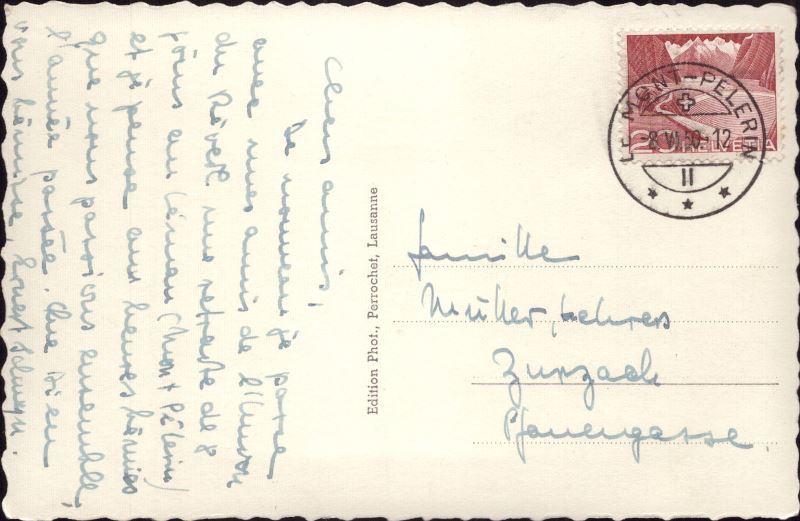 Chers amis,
De nouveau je passe
avec mes amis de l'Union
du Réveil une retraite de 8
jours au Léman (Mont Pélerin)
et je pense aux heures bénies
que nous passions ensemble
l'année passée. Que Dieu
vous bénisse Ernst
Edition Phot., Perrochet, Lausanne
LE MONT-PELERIN
-8.VI.50-12
II
20 HELVETIA
Familie
Müller, Lehrers
Zurzach
Pfauengasse.